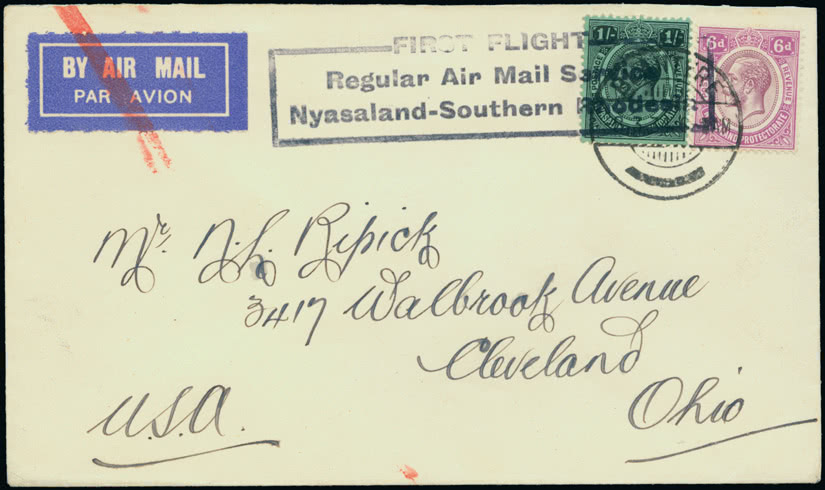 BY AIR MAIL
PAR AVION
FIRST FLIGHT
Regular Air Mail Service
Nyasaland-Southern Rhodesia
1/- 1/-
6d 6d
REVENUE
PROTECTORATE
Mr. N. L. Ripick
3417 Walbrook Avenue
Cleveland
Ohio
U.S.A.